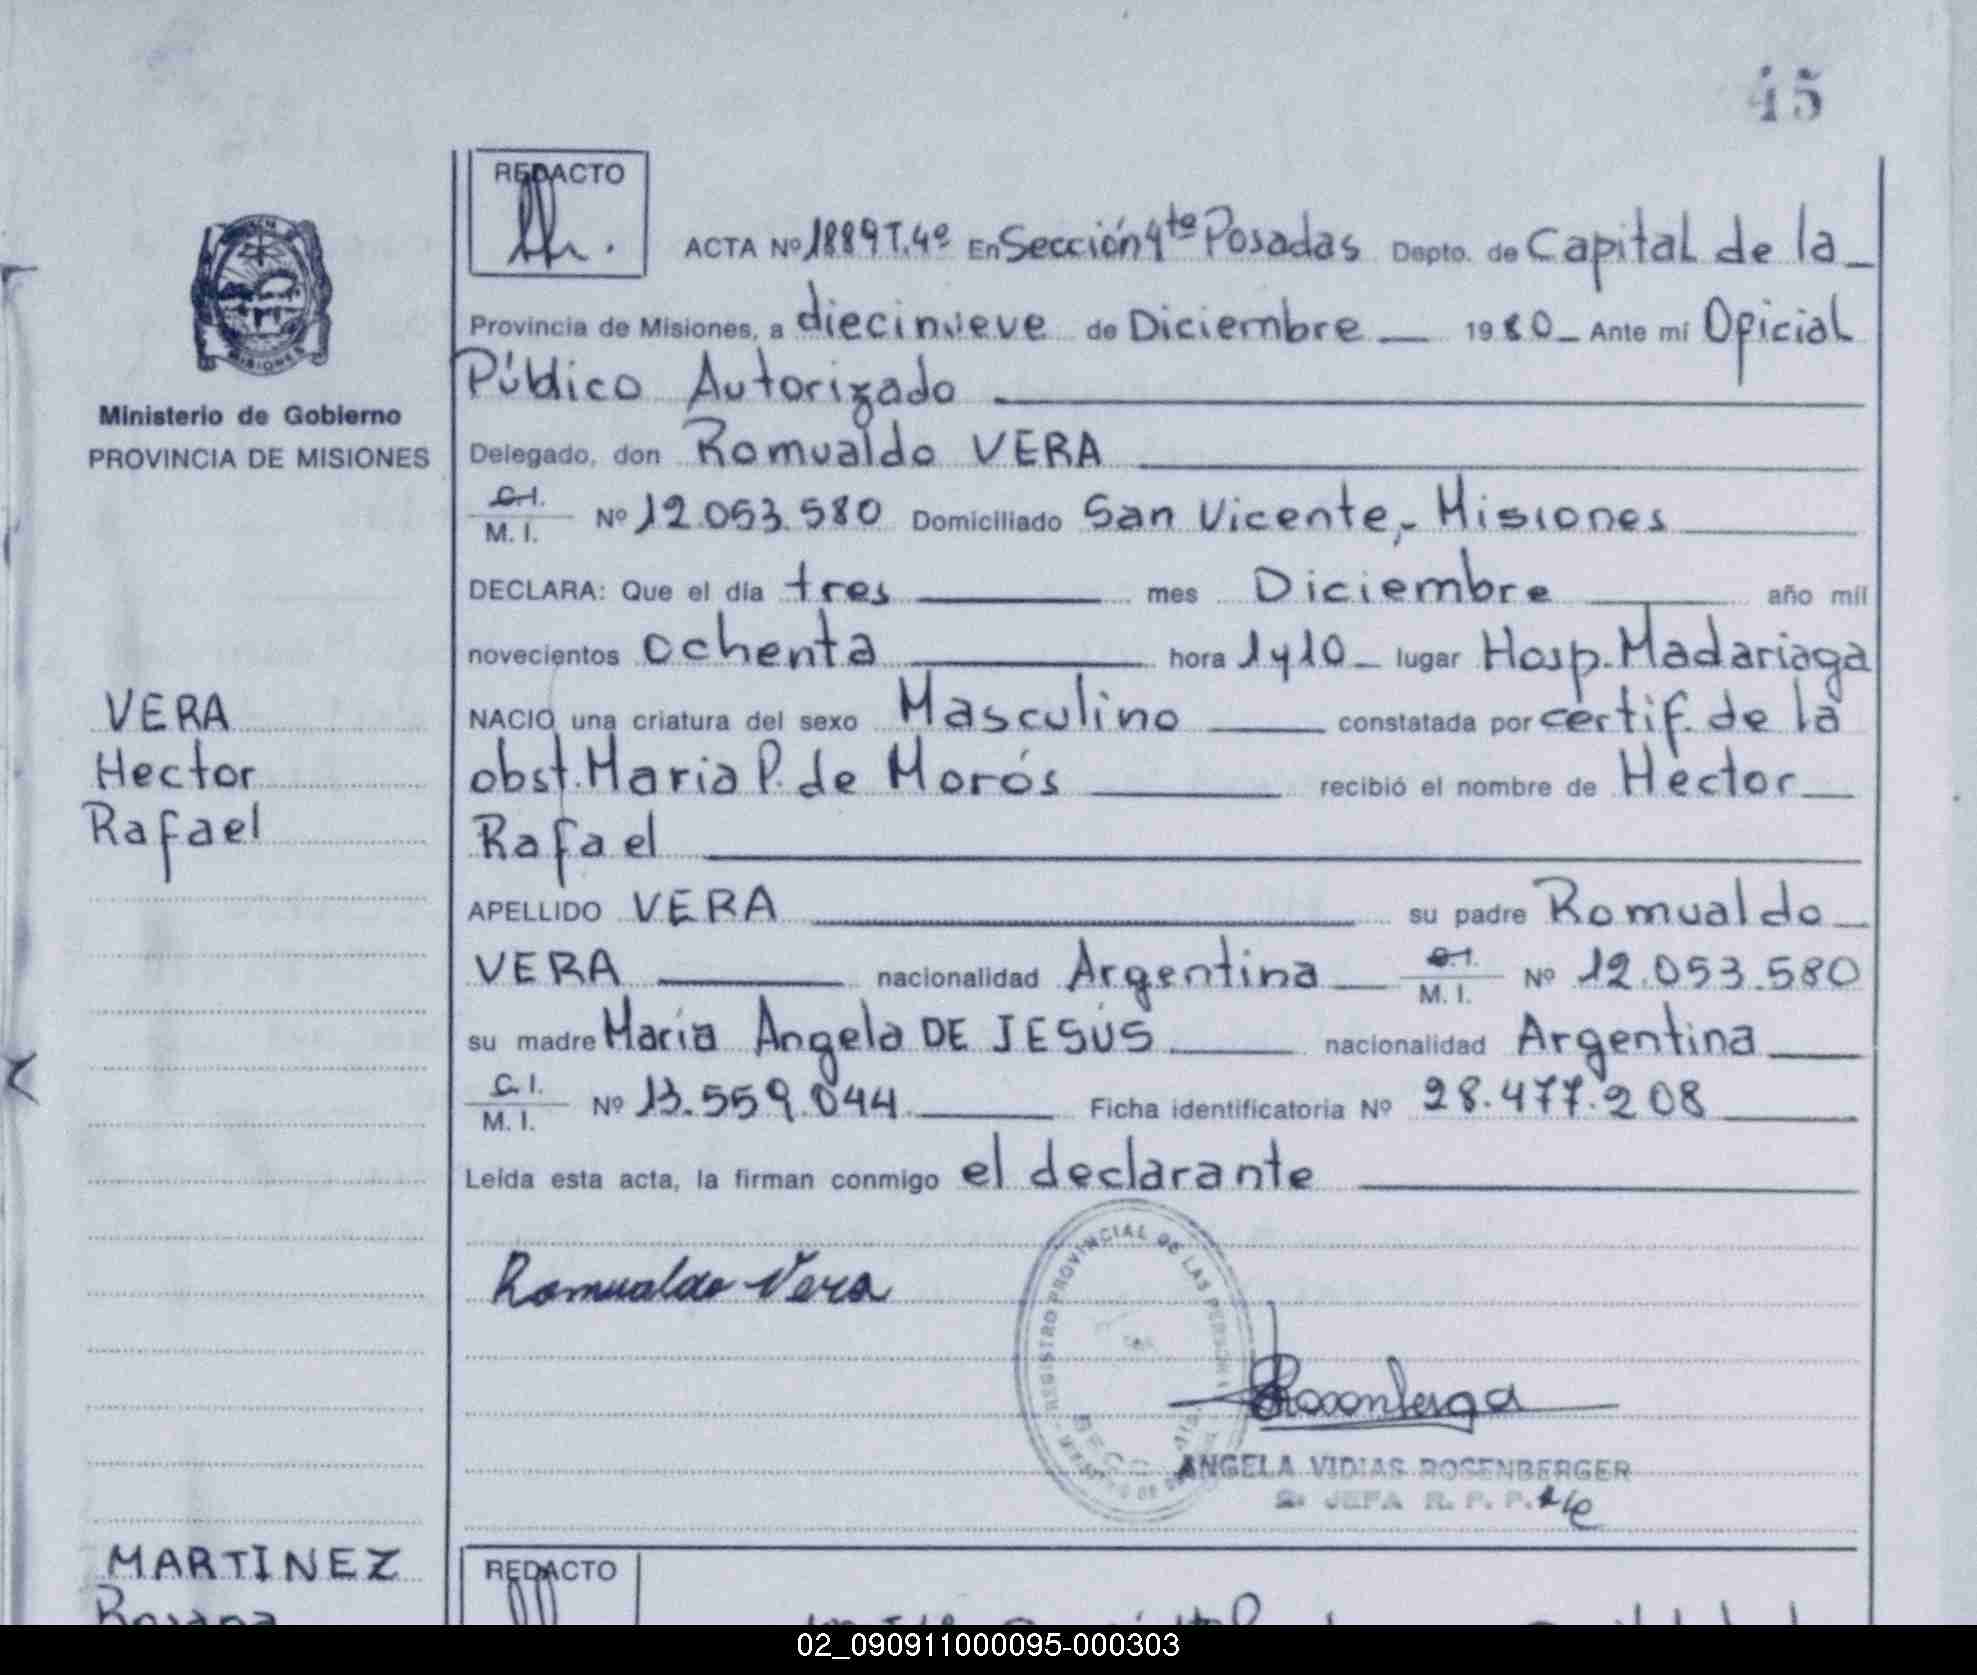 45
REDACTO
ACTA Nº 1889 T.4º En Sección 4ta Posadas Depto. de Capital de la
Provincia de Misiones, a diecinueve de Diciembre 1980 Ante mí Oficial
Público Autorizado
Delegado, don Romualdo VERA
C.I. M. I. Nº 12.053.580 Domiciliado San Vicente, Misiones
DECLARA: Que el día tres mes Diciembre año mil
novecientos ochenta hora 1 y 10 lugar Hosp. Madariaga
NACIO una criatura del sexo Masculino constatada por certif. de la
obst. Maria P. de Morós recibió el nombre de Hector
Rafael
APELLIDO VERA su padre Romualdo
VERA nacionalidad Argentina C.I. M. I. Nº 12.053.580
su madre María Angela DE JESÚS nacionalidad Argentina
C.I. M. I. Nº 13.559.044 Ficha identificatoria Nº 28.477.208
Leída esta acta, la firman conmigo el declarante
Romualdo Vera
REGISTRO PROVINCIAL DE LAS PERSONAS
ANGELA VIDIAS ROSENBERGER
2º JEFA R. P. P.
MISIONES
Ministerio de Gobierno
PROVINCIA DE MISIONES
VERA
Hector
Rafael
MARTINEZ
REDACTO
02_090911000095-000303